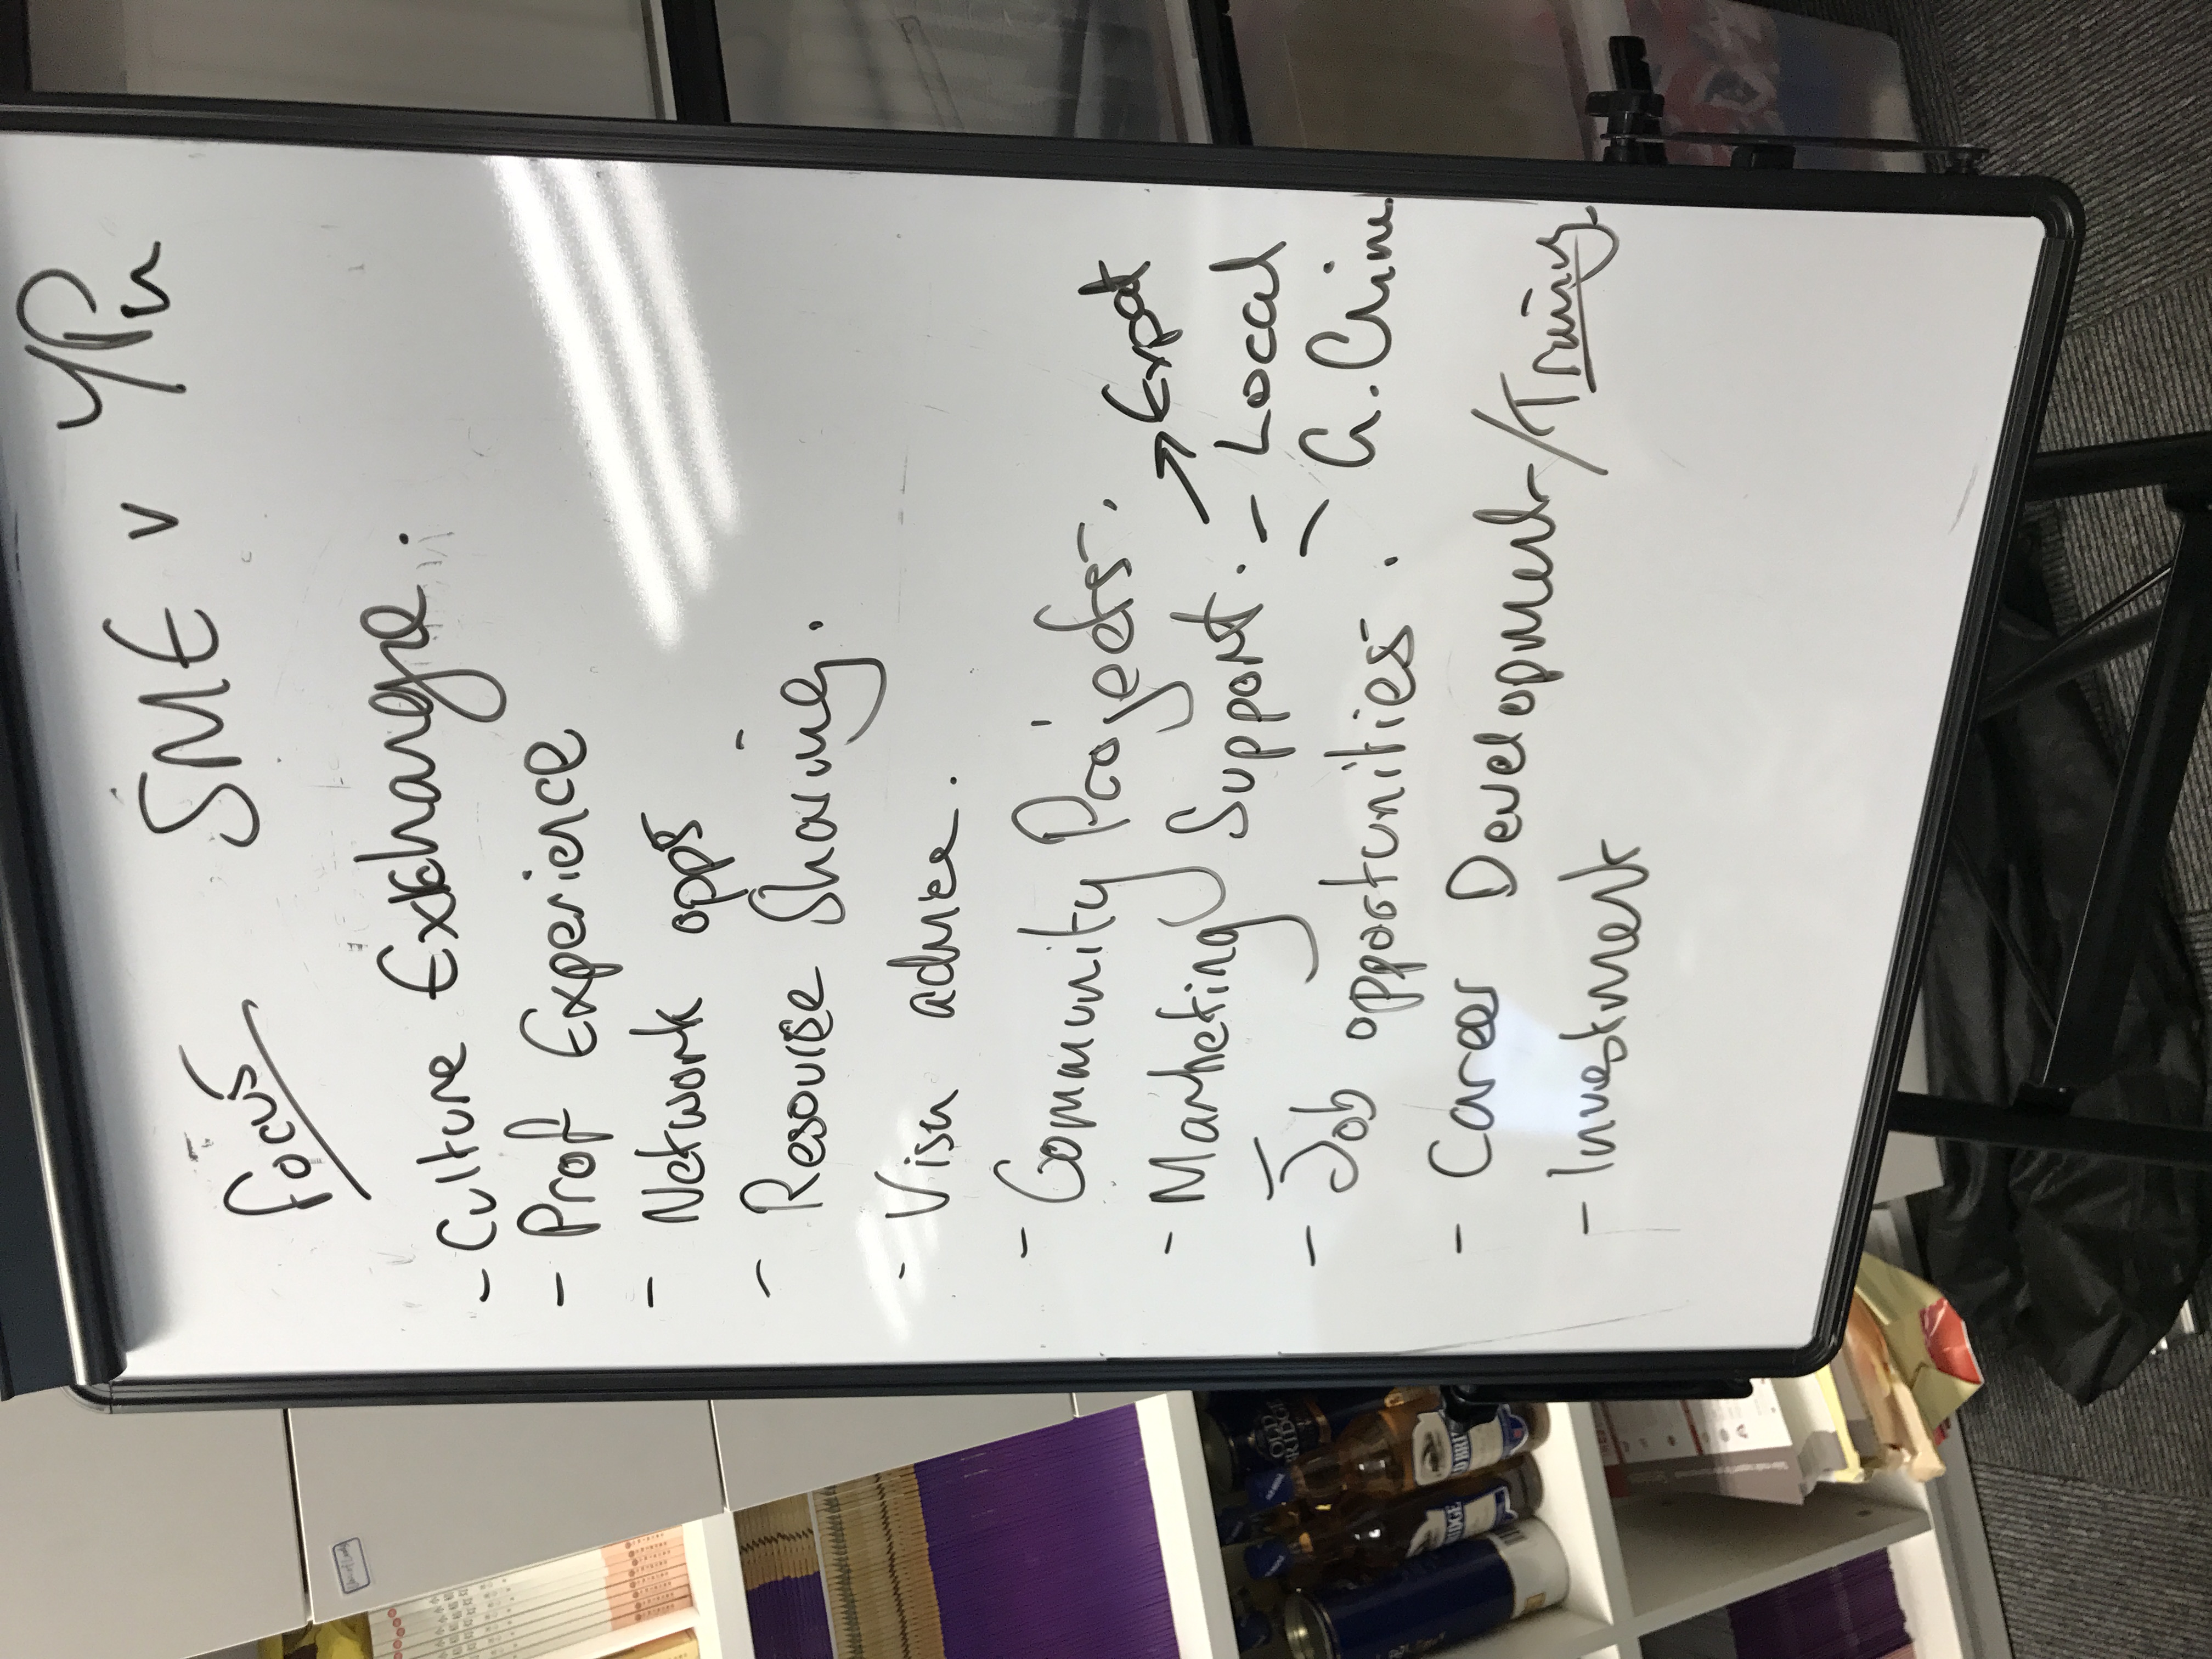 SME v YPN
Focus
- Culture Exchange.
- Prof Experience
- Network opps
- Resource Sharing.
- Visa advice.
- Community Projects.
→ Expat
- Marketing Support. - Local
- G. China
- Job opportunities.
- Career Development/Training
- Investment
OLD
BRIDGE